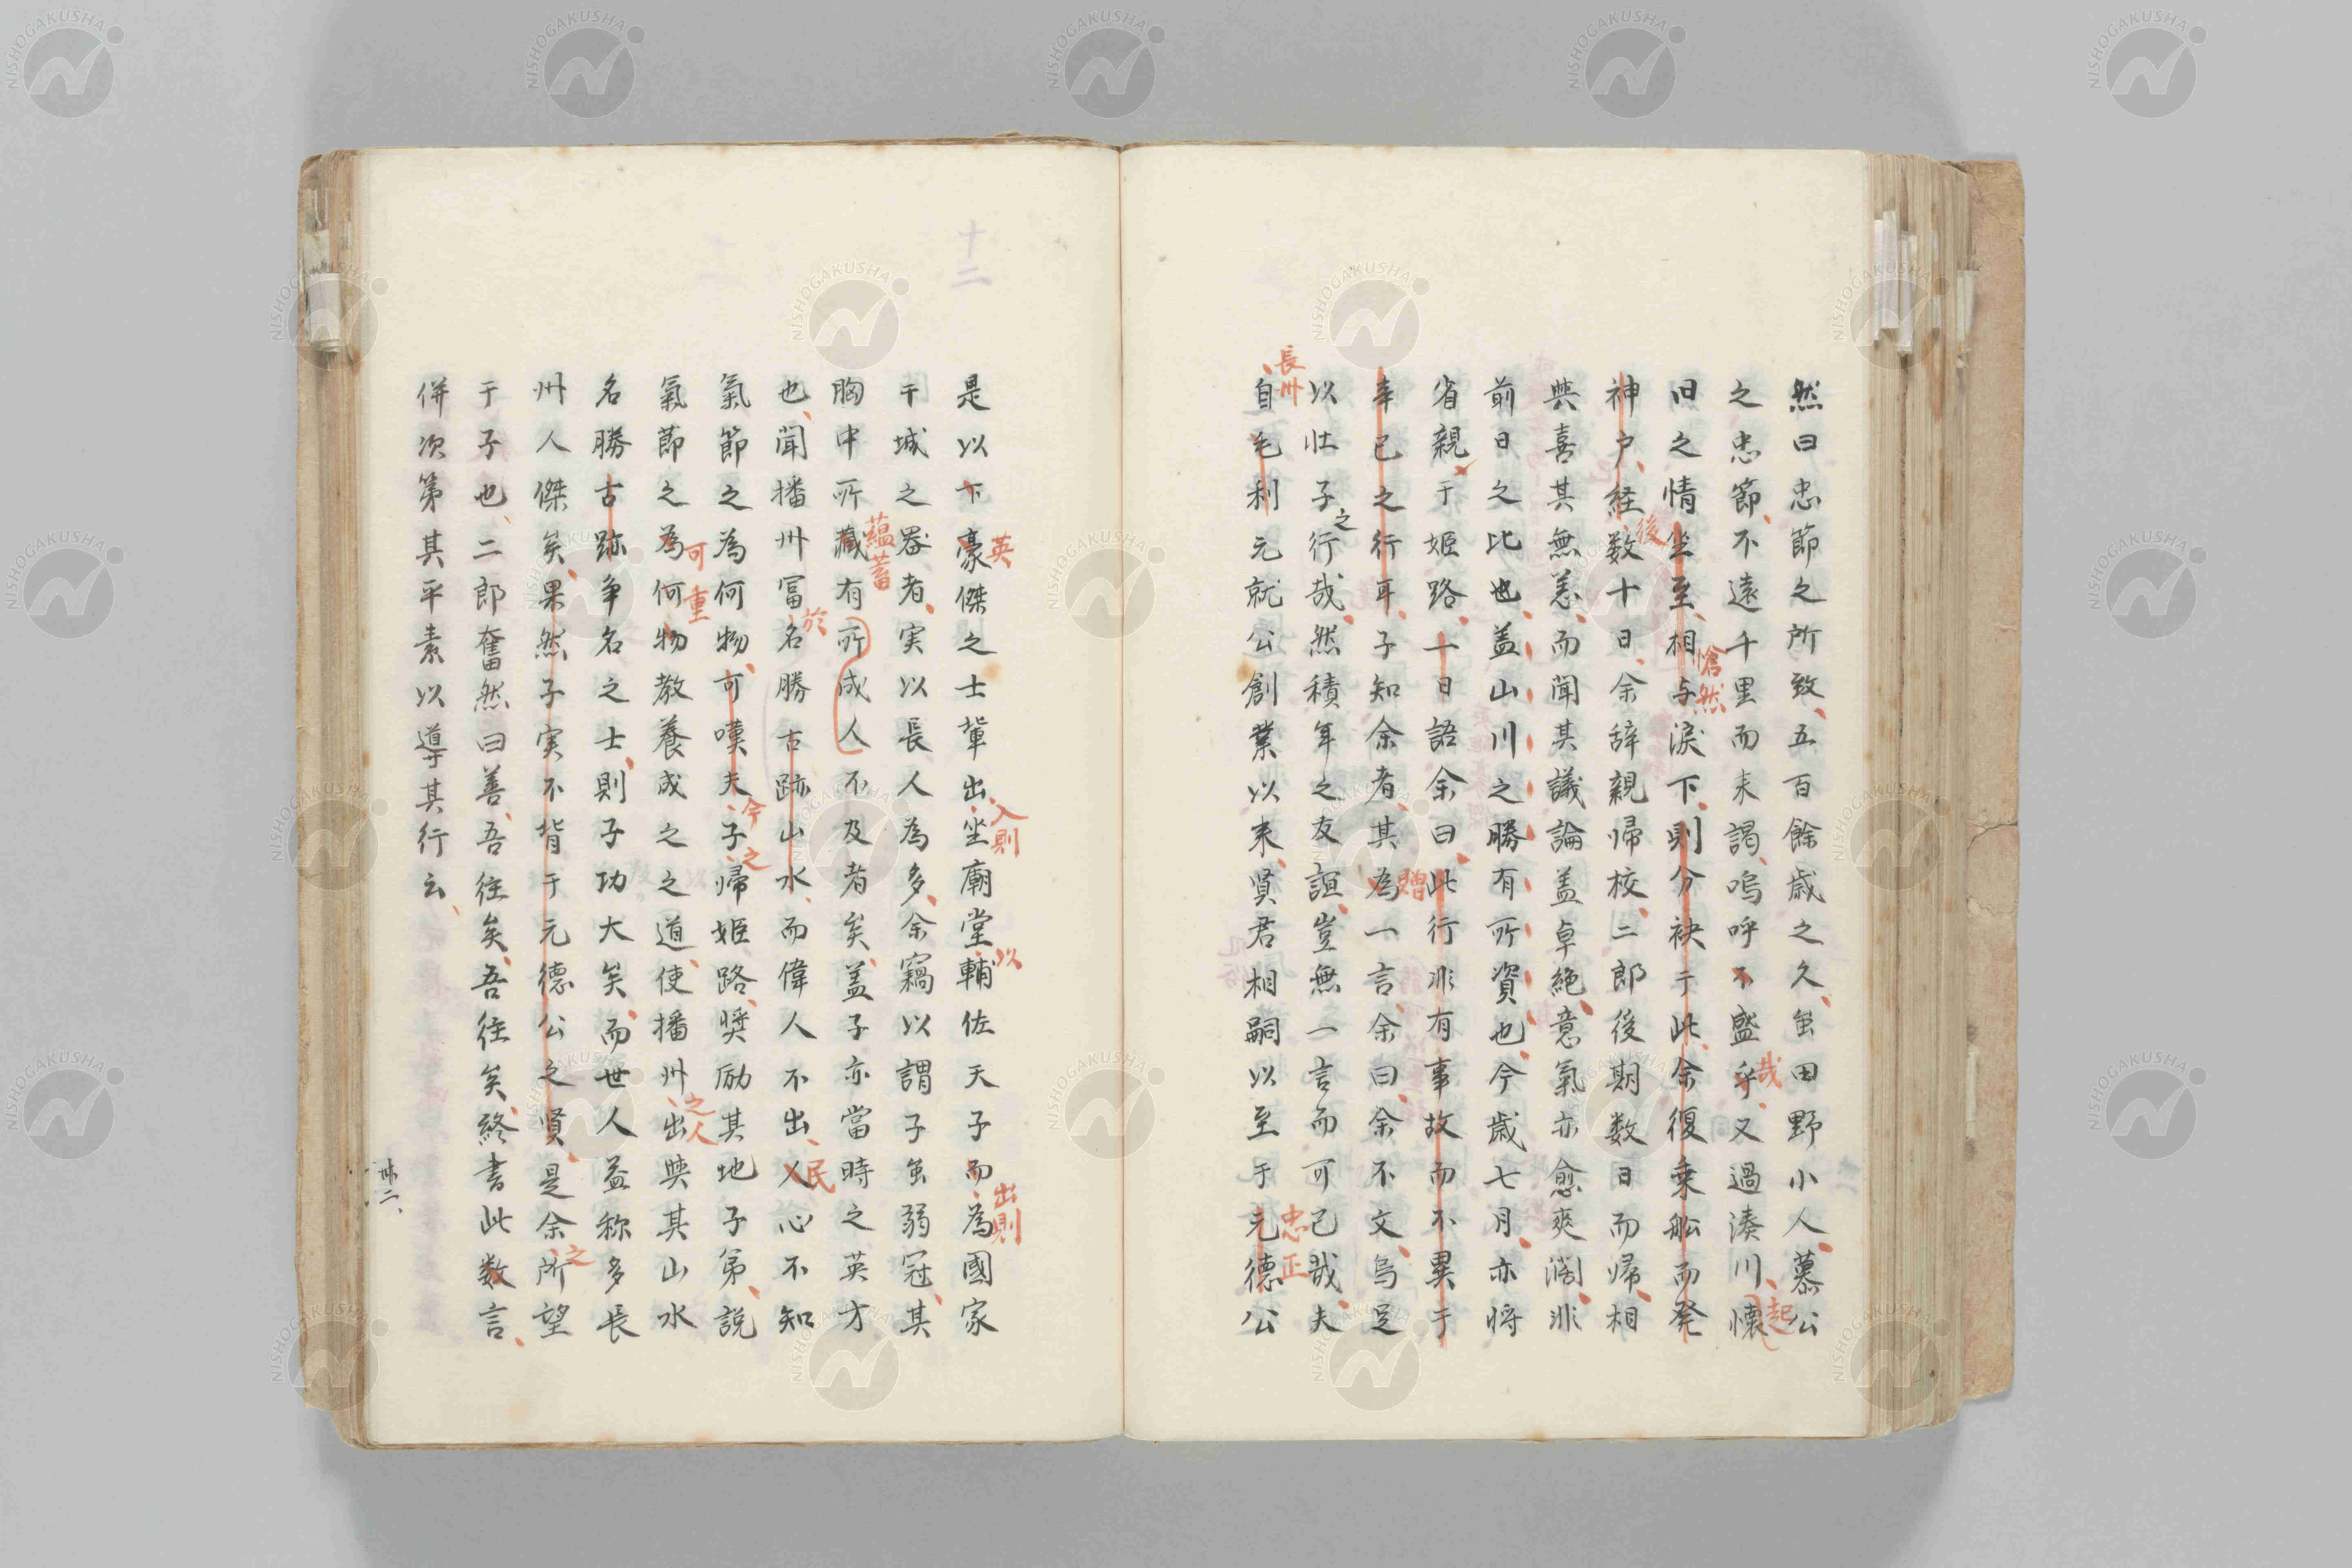 然曰忠節之所致、五百餘歳之久、虽田野小人、慕公
之忠節、不遠千里而来謁、嗚呼不盛乎、又過湊川、懐
哉
起
旧之情坐至、相与涙下、則分袂于此、余復乗舩而発
愴然
神戸、経数十日、余辞親帰校、二郎後期数日而帰、相
後
與喜其無恙、而聞其議論盖卓絶、意氣亦愈爽濶、非
前日之比也、盖山川之勝有所資也、今歳七月、亦将
省親于姫路、一日語余曰、此行非有事故而不異于
幸已之行耳、子知余者、其為一言、余曰、余不文、烏足
贈
以壮子行哉、然積年之友誼、豈無一言而可已哉、夫
之
自毛利元就公創業以来、賢君相嗣以至于元德公
長州
忠正
十二
是以下豪傑之士輩出、坐廟堂輔佐天子而、為國家
英
入則
以
出則
干城之器者、実以長人為多、余竊以謂子虽弱冠、其
胸中所藏有所成人不及者矣、盖子亦當時之英才
蘊蓄
也、聞播州冨名勝古跡山水、而偉人不出、人心不知
於
民
氣節之為何物、可嘆夫、子帰姫路、奬励其地子弟、説
今
之
氣節之為何物教養成之之道、使播州出與其山水
可重
之人
名勝古跡争名之士、則子功大矣、而世人益称多長
州人傑矣、果然子実不背于元德公之賢、是余所望
之
于子也、二郎奮然曰善、吾往矣、吾往矣、終書此数言、
併次第其平素以導其行云、
卅二、
NISHOGAKUSHA